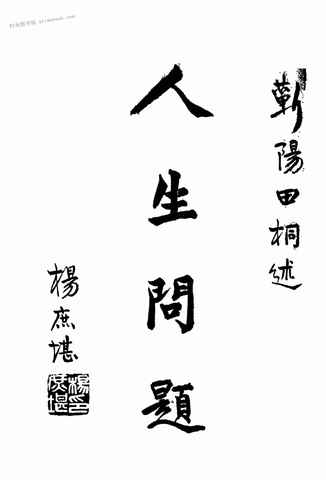 蘄陽田桐述
人生問題
楊庶堪